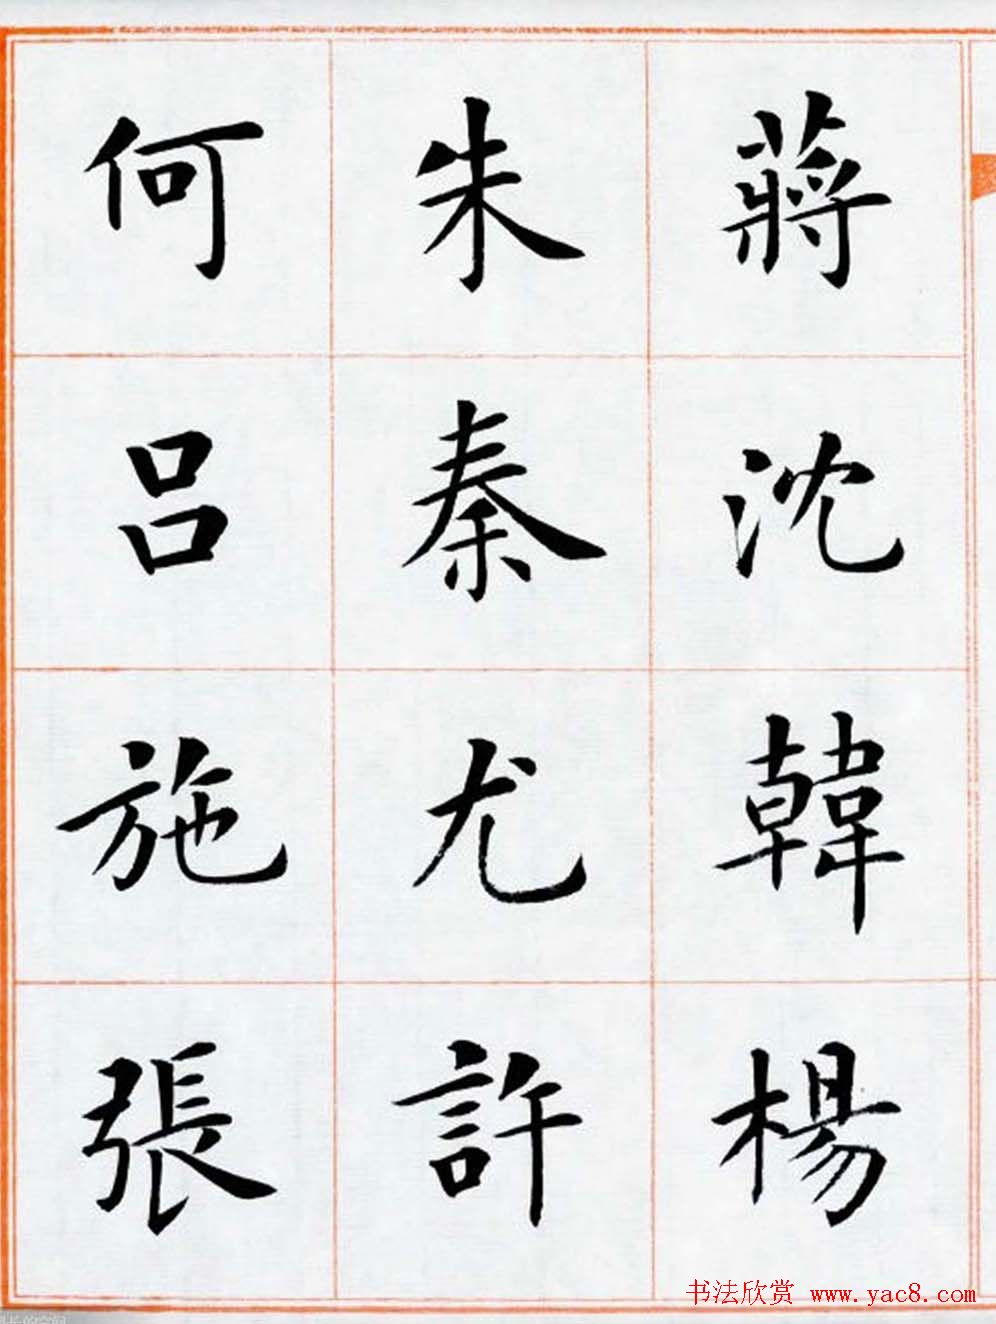 蔣沈韓楊
朱秦尤許
何吕施張
书法欣赏 www.yac8.com